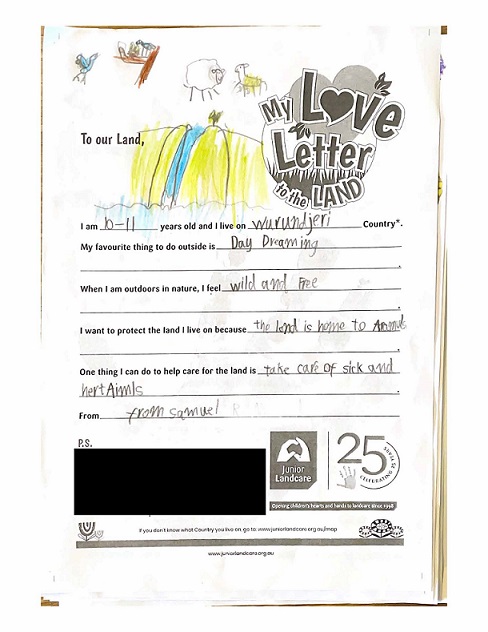 My Love
Letter
to the LAND
To our Land,
I am 10-11 years old and I live on Wurundjeri Country*.
My favourite thing to do outside is Day Dreaming
.
When I am outdoors in nature, I feel wild and Free
.
I want to protect the land I live on because the land is home to Animals
.
One thing I can do to help care for the land is take care of sick and
hert Aimls .
From from Samuel
P.S.
Junior
Landcare
25
CELEBRATING 25 YEARS
Opening children's hearts and hands to landcare since 1998
If you don't know what Country you live on, go to: www.juniorlandcare.org.au/map
www.juniorlandcare.org.au